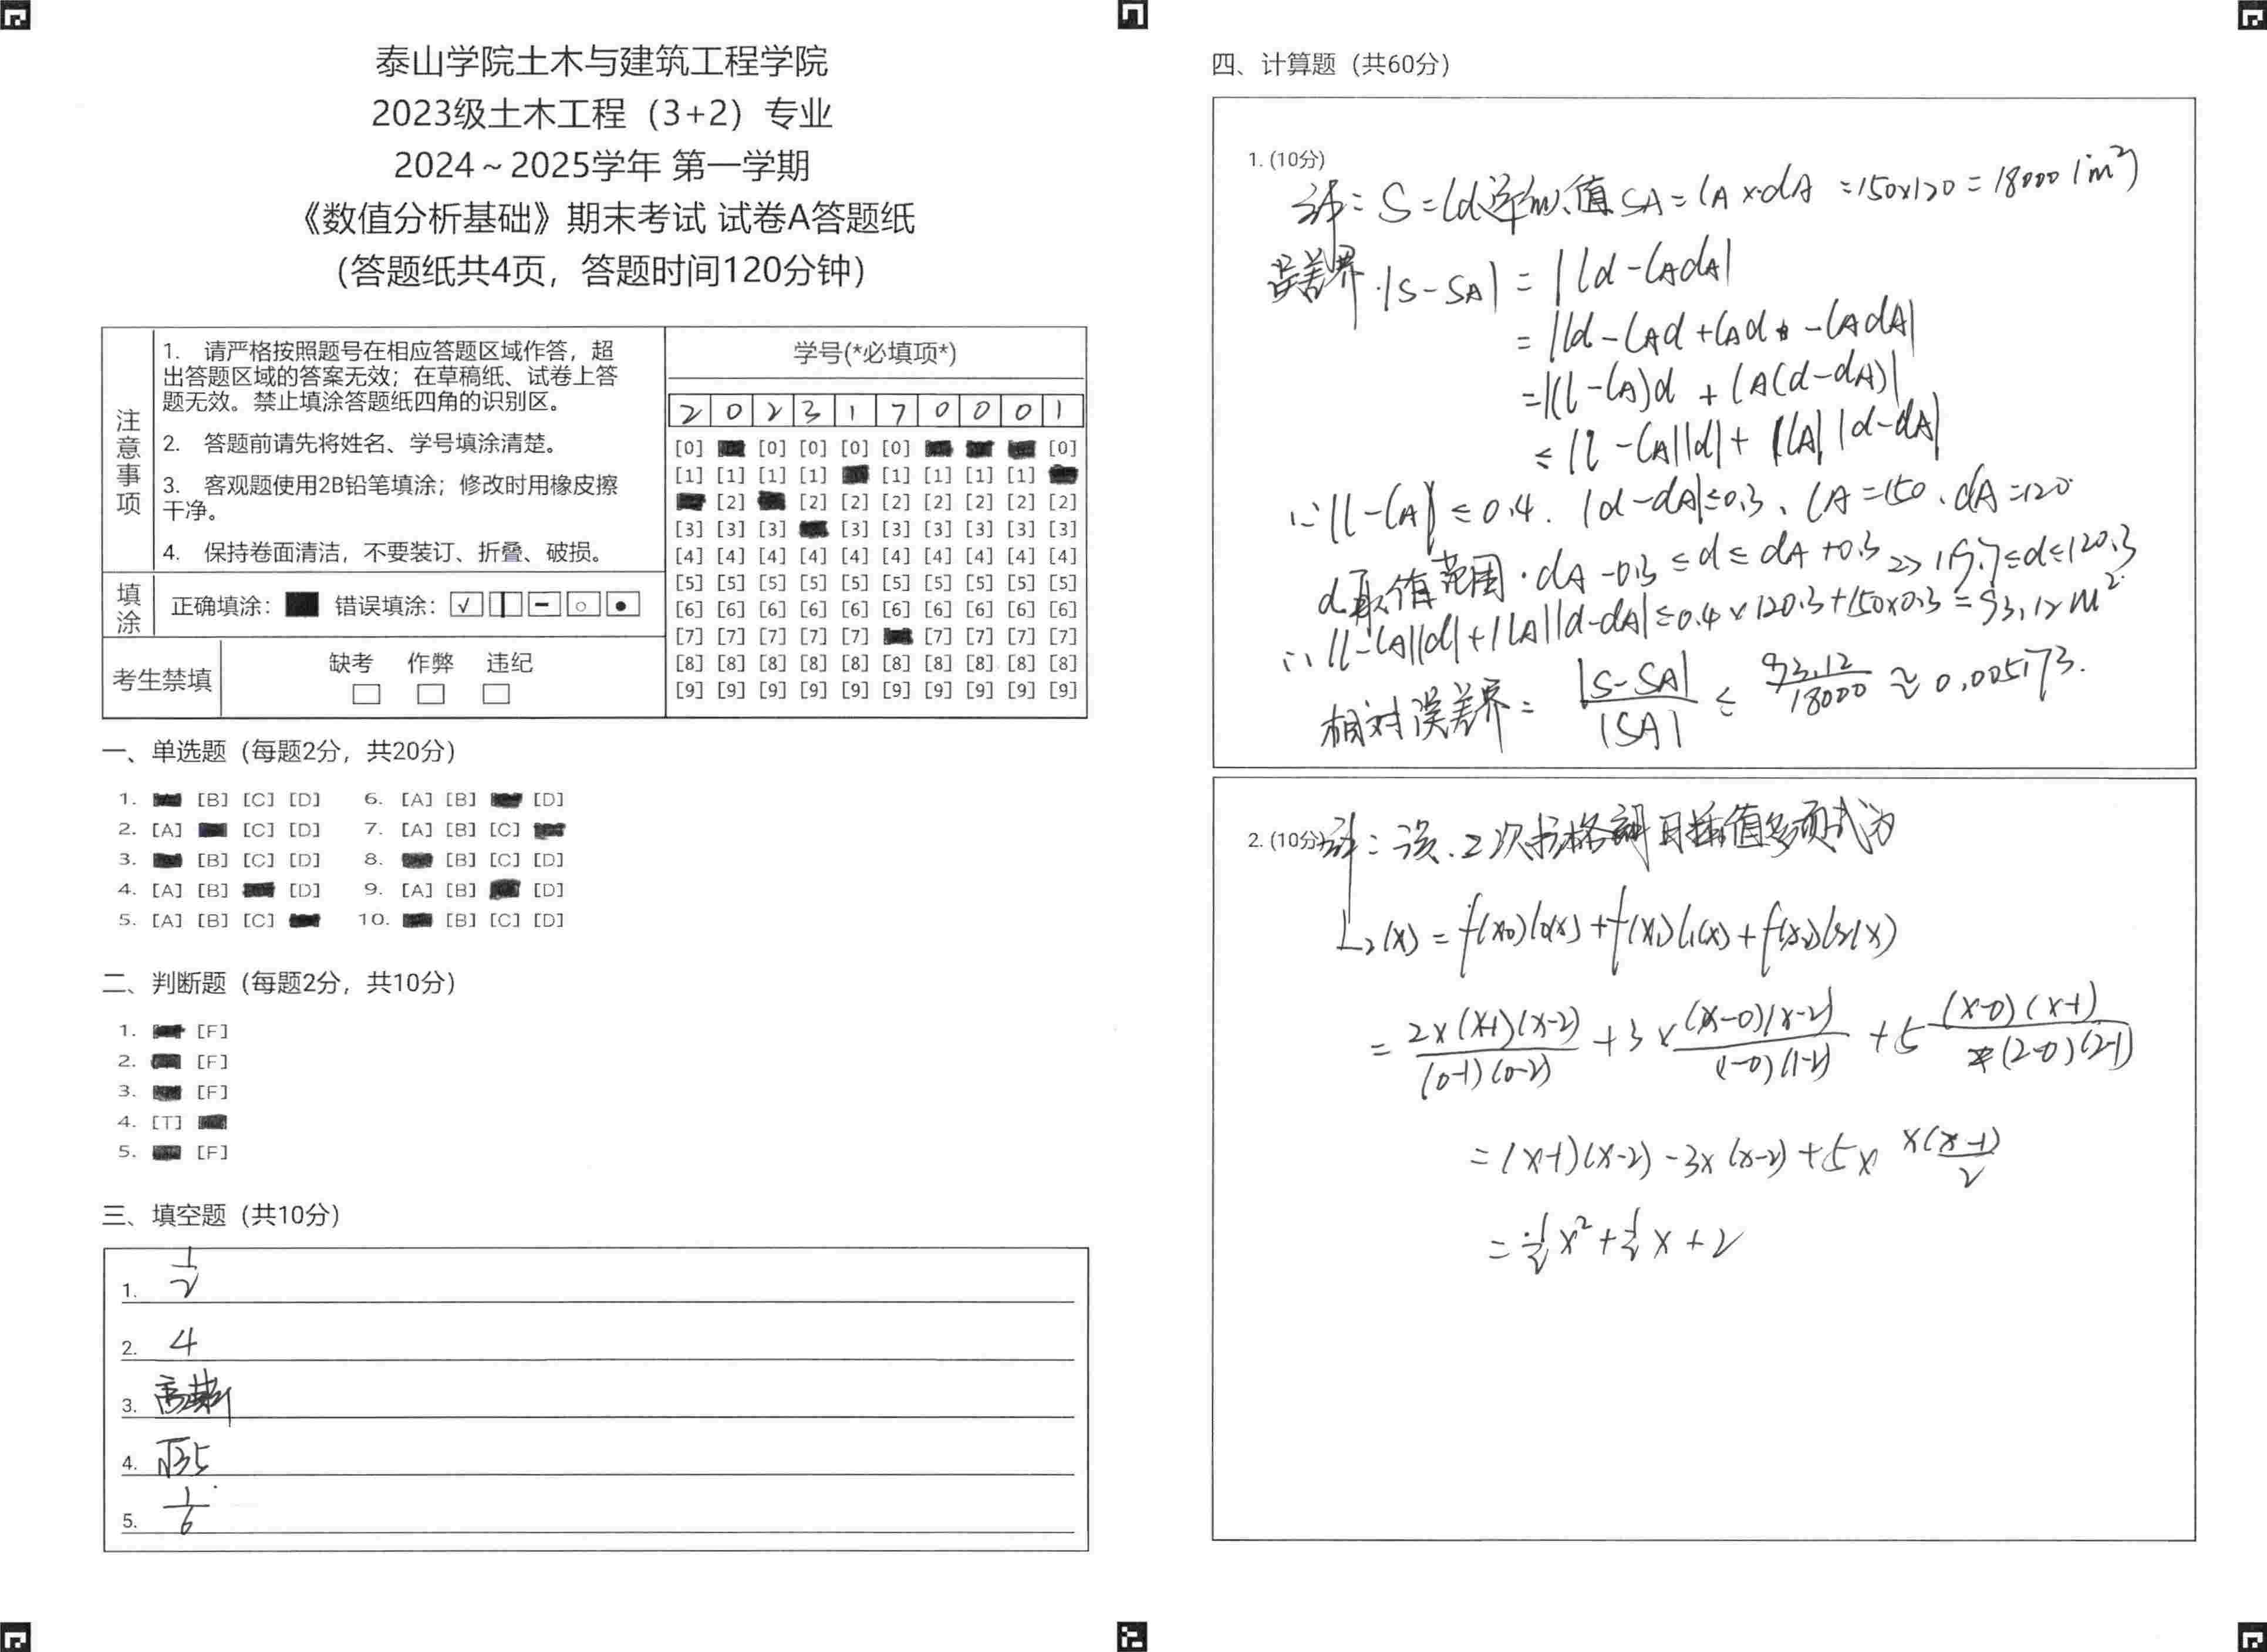 泰山学院土木与建筑工程学院
2023级土木工程（3+2）专业
2024～2025学年 第一学期
《数值分析基础》期末考试 试卷A答题纸
（答题纸共4页，答题时间120分钟）
注意事项
1. 请严格按照题号在相应答题区域作答，超
出答题区域的答案无效；在草稿纸、试卷上答
题无效。禁止填涂答题纸四角的识别区。
2. 答题前请先将姓名、学号填涂清楚。
3. 客观题使用2B铅笔填涂；修改时用橡皮擦
干净。
4. 保持卷面清洁，不要装订、折叠、破损。
填涂 正确填涂： 错误填涂：
考生禁填 缺考 作弊 违纪
学号(*必填项*)
2 0 2 3 1 7 0 0 0 1
[0] [0] [0] [0] [0] [0]
[1] [1] [1] [1] [1] [1] [1] [1]
[2] [2] [2] [2] [2] [2] [2] [2]
[3] [3] [3] [3] [3] [3] [3] [3] [3]
[4] [4] [4] [4] [4] [4] [4] [4] [4] [4]
[5] [5] [5] [5] [5] [5] [5] [5] [5] [5]
[6] [6] [6] [6] [6] [6] [6] [6] [6] [6]
[7] [7] [7] [7] [7] [7] [7] [7] [7]
[8] [8] [8] [8] [8] [8] [8] [8] [8] [8]
[9] [9] [9] [9] [9] [9] [9] [9] [9] [9]
一、单选题（每题2分，共20分）
1. [B] [C] [D] 6. [A] [B] [D]
2. [A] [C] [D] 7. [A] [B] [C]
3. [B] [C] [D] 8. [B] [C] [D]
4. [A] [B] [D] 9. [A] [B] [D]
5. [A] [B] [C] 10. [B] [C] [D]
二、判断题（每题2分，共10分）
1. [F]
2. [F]
3. [F]
4. [T]
5. [F]
三、填空题（共10分）
1. 1/2
2. 4
3. 高斯
4. √35
5. 1/6
四、计算题（共60分）
1. (10分)
解: S = ld 近似值 SA = lA × dA = 150×120 = 18000 (m²)
误差界 |S - SA| = |ld - lAdA|
= |ld - lAd + lAd - lAdA|
= |(l - lA)d + lA(d - dA)|
≤ |l - lA||d| + |lA||d - dA|
∵ |l - lA| ≤ 0.4. |d - dA| ≤ 0.3、lA = 150、dA = 120
d取值范围. dA - 0.3 ≤ d ≤ dA + 0.3 => 119.7 ≤ d ≤ 120.3
∴ |l - lA||d| + |lA||d - dA| ≤ 0.4 × 120.3 + 150×0.3 = 93.12 m²
相对误差界 = |S - SA|/|SA| ≤ 93.12/18000 ≈ 0.005173.
2. (10分) 解: 设.2次拉格朗日插值多项式为
L₂(x) = f(x₀)l₀(x) + f(x₁)l₁(x) + f(x₂)l₂(x)
= 2×(x-1)(x-2)/(0-1)(0-2) + 3×(x-0)(x-2)/(1-0)(1-2) + 5 (x-0)(x-1)/(2-0)(2-1)
= (x-1)(x-2) - 3x(x-2) + 5× x(x-1)/2
= 1/2 x² + 1/2 x + 2